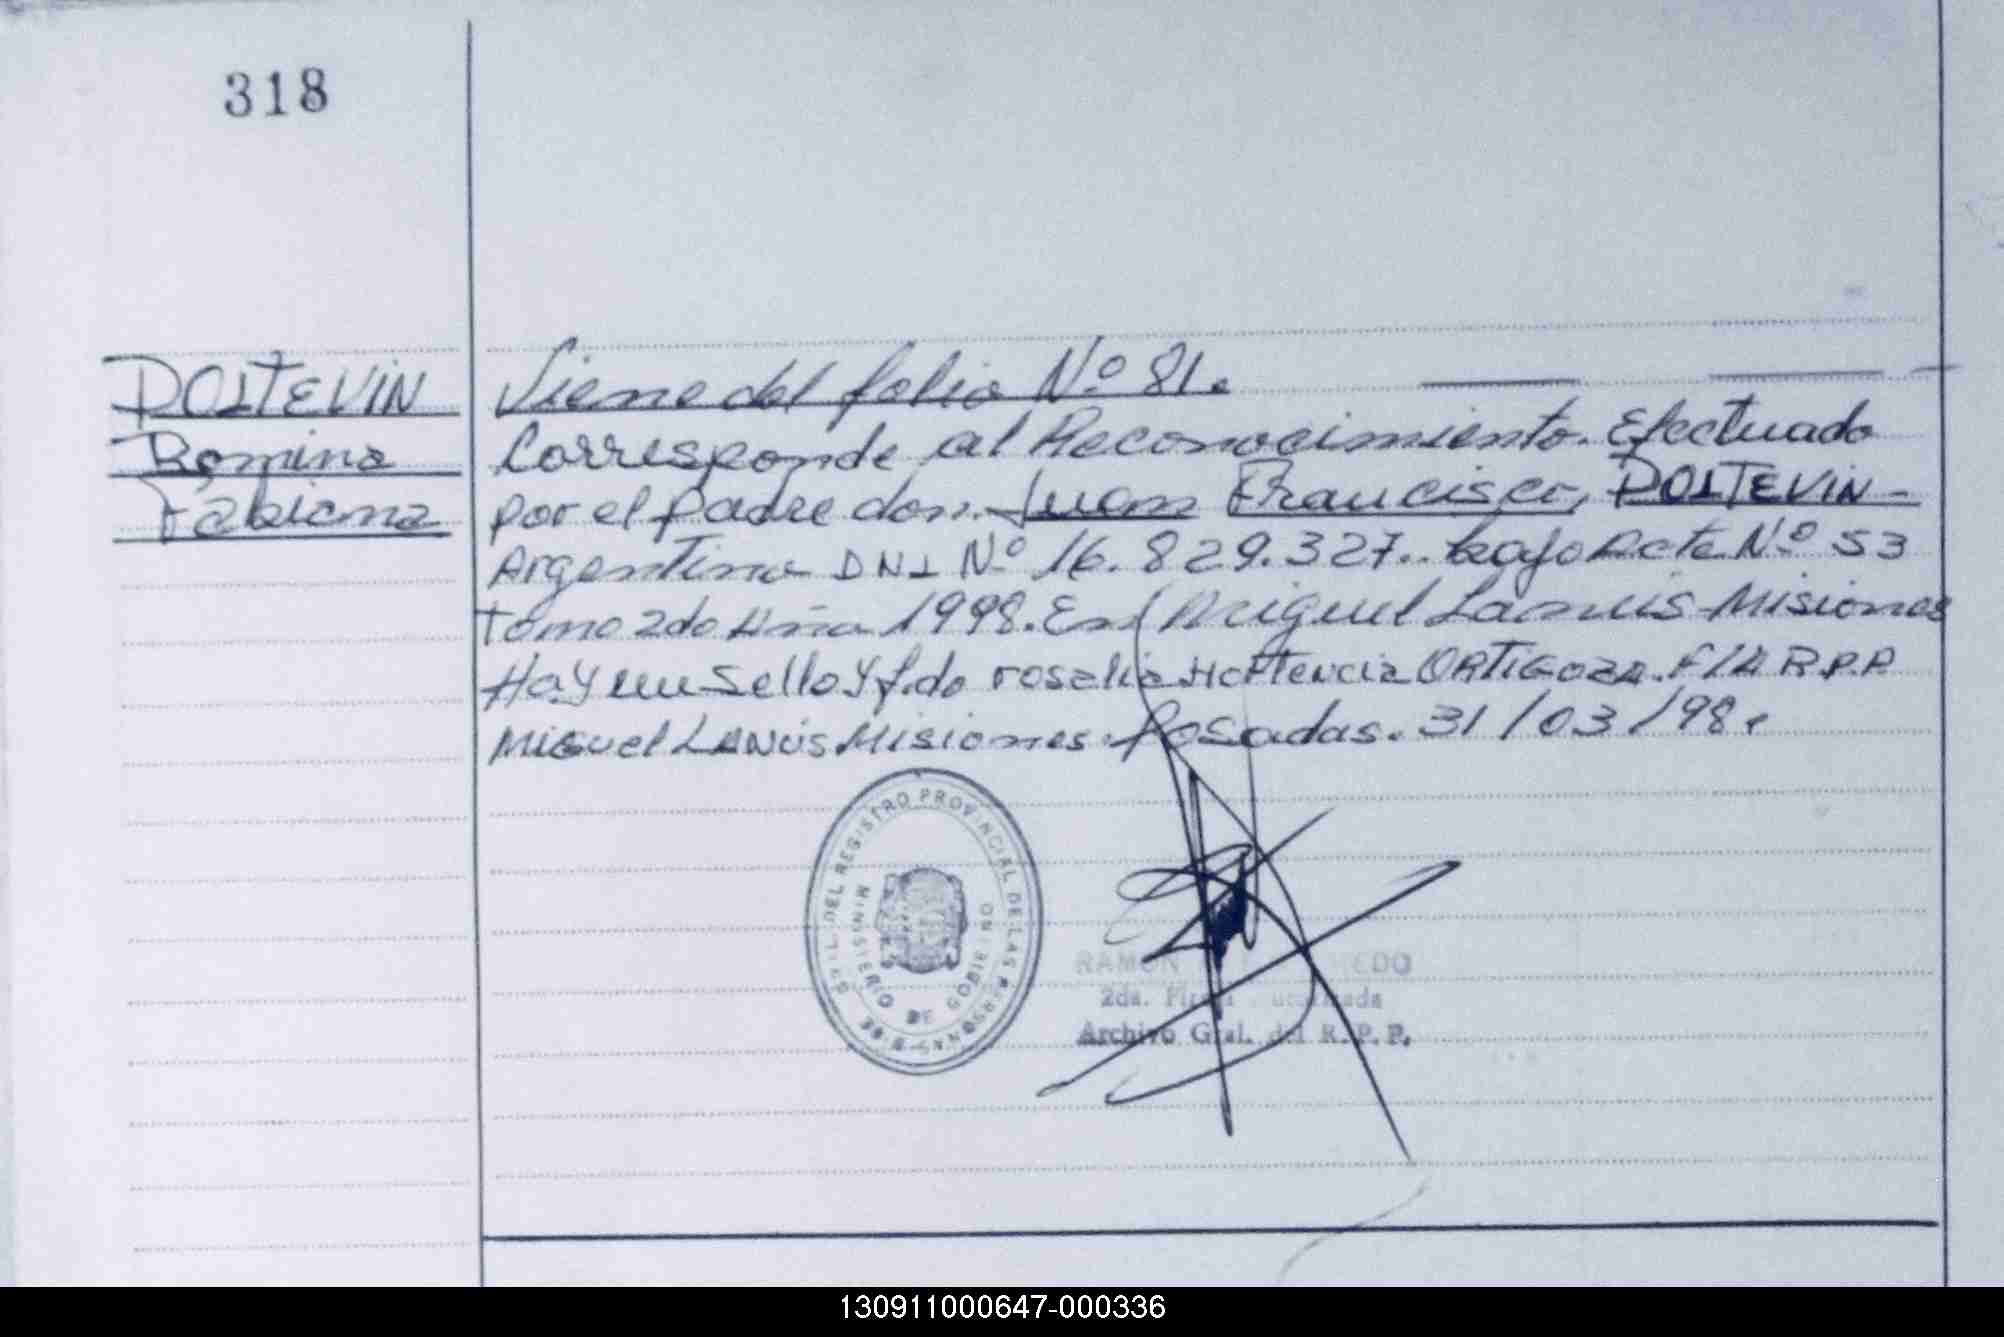 318
POITEVIN
Romina
Fabiana
Viene del folio Nº 81.
Corresponde al Reconocimiento. Efectuado
por el padre don. Juan Francisco, POITEVIN-
Argentino DNI Nº 16.829.327.. bajo Acta Nº 53
tomo 2do Año 1998. En Miguel Lanús-Misiones
Hay un Sello y f.do rosalia Hortencia ORTIGOZA. F/A R.P.P.
MIGUEL LANÚS Misiones. Posadas. 31/03/98.
GRAL. DEL REGISTRO PROVINCIAL DE LAS PERSONAS
MINISTERIO DE GOBIERNO
RAMON EDO
2da.
Archivo Gral. del R. P. P.
130911000647-000336